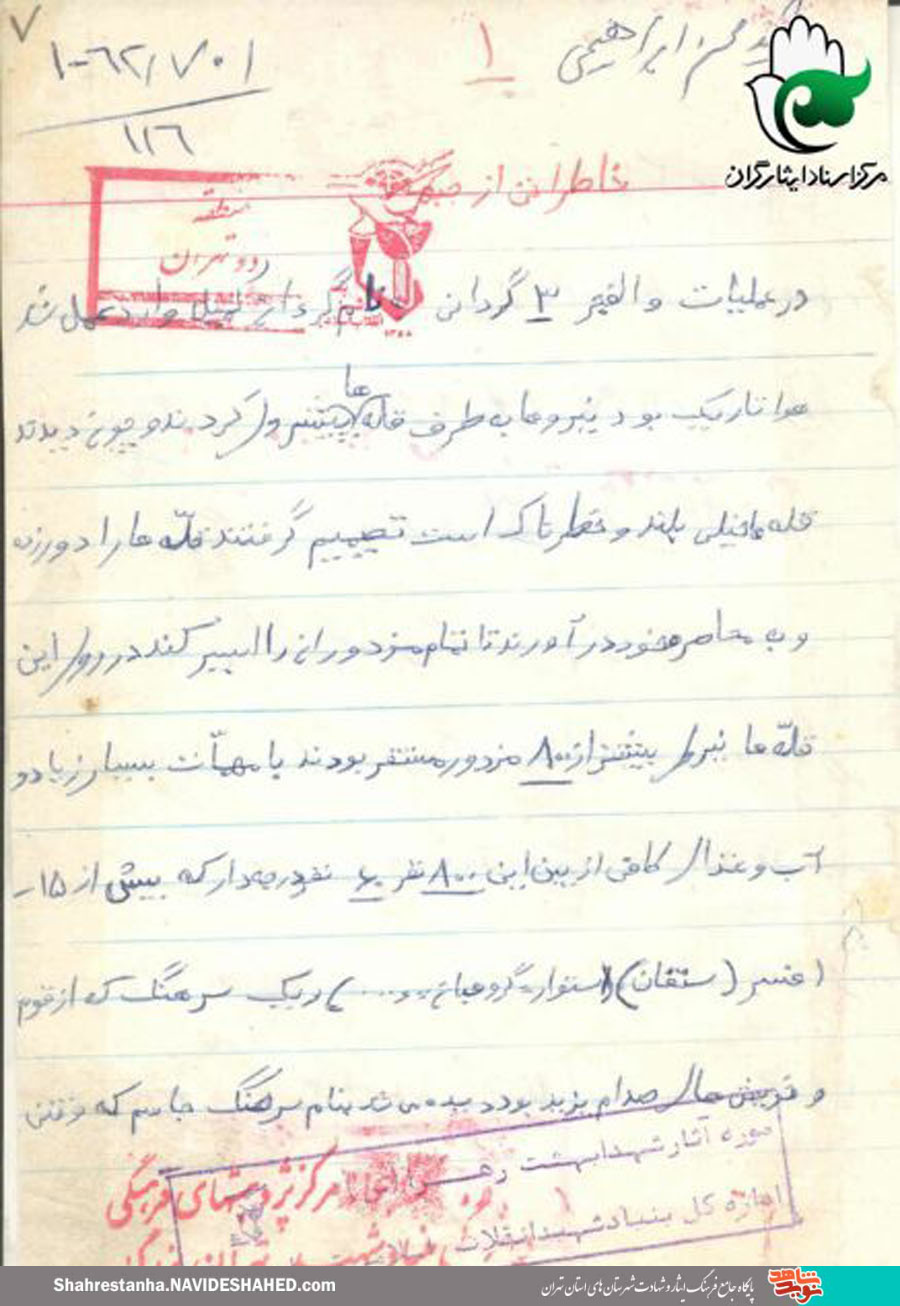 ۷
۱-۶۲/۷۰۱
۱۱۶
۱
محسن ابراهیمی
مرکز اسناد ایثارگران
خاطراتی از جبهه
منطقه
دو تهران
در عملیات والفجر ۳ گردانی بنام گردان کمیل وارد عمل شد
هوا تاریک بود نیروها به طرف قله ها پیشروی کردند و چون دیدند
قله ها خیلی بلند و خطرناک است تصمیم گرفتند قلّه ها را دور زده
و به محاصره خود در آورند تا تمام مزدوران را اسیر کنند در روی این
قلّه ها نیروی بیشتر از ۸۰۰ مزدور مستقر بودند با مهمّات بسیار زیاد و
آب و غذای کافی از بین این ۸۰۰ نفر ۶۰ نفر درجه دار که بیش از ۱۵-
افسر (ستوان) استوار، گروهبان و....) و یک سرهنگ که از قوم
و قریش های صدام یزید بود دیده می شد بنام سرهنگ جاسم که وقتی
موزه آثار شهدا بهشت زهرا
اداره کل بنیاد شهید انقلاب
مرکز پژوهشهای فرهنگی
Shahrestanha.NAVIDESHAHED.com
پایگاه جامع فرهنگ ایثار و شهادت شهرستان های استان تهران
نوید شاهد